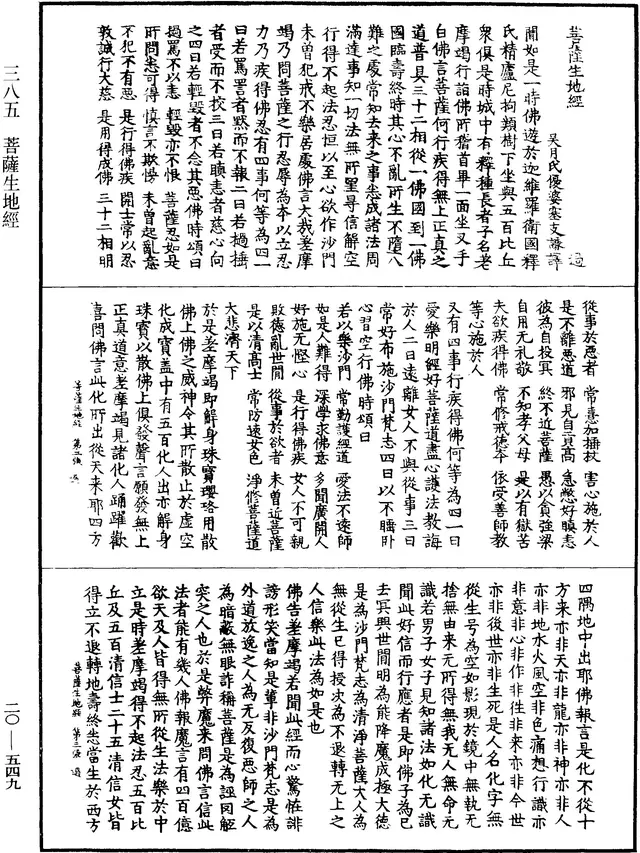 菩薩生地經
吳月氏優婆塞支謙譯 過
聞如是一時佛遊於迦維羅衛國釋
氏精廬尼拘類樹下坐與五百比丘
衆俱是時城中有釋種長者子名差
摩竭行詣佛所稽首畢一面坐叉手
白佛言菩薩何行疾得無上正真之
道普具三十二相從一佛國到一佛
國臨壽終時其心不亂所生不墮八
難之處常知去來之事悉成諸法周
滿達事知一切法無所罣㝵信解空
行得不起法忍恒以至心欲作沙門
未曾犯戒不樂居處佛言大哉差摩
竭乃問菩薩之行忍辱為本以立忍
力乃疾得佛忍有四事何等為四一
曰若罵詈者默而不報二曰若撾捶
者受而不挍三曰若瞋恚者慈心向
之四曰若輕毀者不念其惡佛時頌曰
撾罵不以恚 輕毀亦不恨 菩薩忍如是
所問悉可得 慎言不欺慢 未曾起亂意
不犯不有惡 是行得佛疾 開士常以忍
敦誠行大慈 是用得成佛 三十二相明
從事於愚者 常喜加捶杖 害心施於人
是不離惡道 邪見自貢高 急憋好瞋恚
彼為自投冥 終不近菩薩 愚以貪強梁
自用无礼敬 不知孝父母 是以有獄苦
夫欲疾得佛 常修戒德本 依受善師教
等心施於人
又有四事行疾得佛何等為四一曰
愛樂明經好菩薩道盡心護法教誨
於人二曰遠離女人不與從事三曰
常好布施沙門梵志四曰以不睡卧
心習空行佛時頌曰
若以樂沙門 常勤護經道 愛法不遠師
如是人難得 深學求佛意 多聞廣開人
好施无慳心 是行得佛疾 女人不可親
敗德亂世閒 從事於欲者 未曾近菩薩
是以清高士 常防遠女色 淨修菩薩道
大悲濟天下
於是差摩竭即解身珠寶瓔珞用散
佛上佛之威神令其所散止於虛空
化成寶蓋中有五百化人出亦解身
珠寶以散佛上俱發聲言願發無上
正真道意差摩竭見諸化人踊躍歡
喜問佛言此化所出從天來耶四方
菩薩生地經 第二張 過
四隅地中出耶佛報言是化不從十
方來亦非天亦非龍亦非神亦非人
亦非地水火風空非色痛想行識亦
非意非心非作非往非來亦非今世
亦非後世亦非生死是人名化字無
從生号為空如影現於鏡中無執无
捨無由來元所得無我无人無命元
識若男子女子見知諸法如化无識
聞此好信而行應者是即佛子為已
去冥興世閒明為能降魔成極大德
是為沙門梵志為清淨菩薩大人為
無從生已得授決為不退轉无上之
人信樂此法為如是也
佛告差摩竭若聞此經而心驚怪誹
謗形笑當知是輩非沙門梵志是為
外道放逸之人為无反復惡師之人
為暗蔽無眼詐稱菩薩是為誣罔解
突之人也於是弊魔來問佛言信此
法者能有幾人佛報魔言有四百億
欲天及人皆得無所從生法樂於中
立是時差摩竭得不起法忍五百比
丘及五百清信士二十五清信女皆
得立不退轉地壽終悉當生於西方
菩薩生地經 第三張 過
三八五 菩薩生地經
二〇—五四九